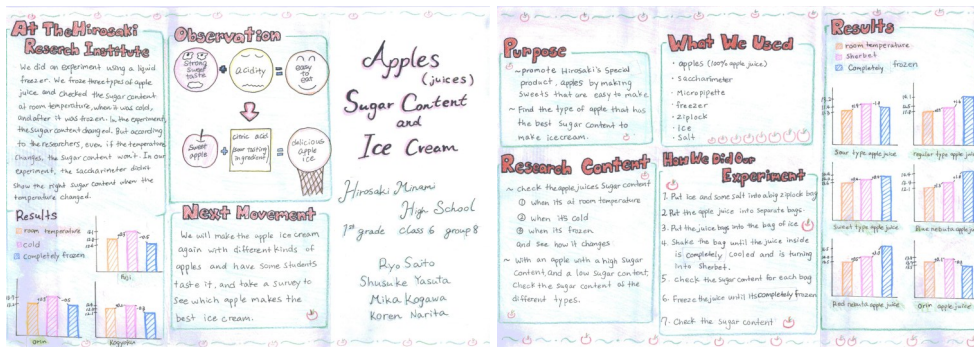 At The Hirosaki
Reserch Institute
We did an experiment using a liquid
freezer. We froze three types of apple
juice and checked the sugar content
at room temperature, when it was cold,
and after it was frozen. In the experiment,
the sugar content changed. But according
to the researchers, even if the temperature
changes, the sugar content won't. In our
experiment, the saccharimeter didn't
show the right sugar content when the
temperature changed.
Results
room temperature
cold
completely frozen
Fuji
Orin
Kogyoku
Observation
strong
sweet
taste
+
acidity
=
easy
to
eat
sweet
apple
+
citric acid
ingredient
=
delicious
apple
ice
Next Movement
We will make the apple ice cream
again with different kinds of
apples and have some students
taste it, and take a survey to
see which apple makes the
best ice cream.
Apples
(juices)
Sugar Content
and
Ice Cream
Hirosaki Minami
High School
1st grade class 6 group 8
Ryo Saito
Shusuke Yasuta
Mika Kogawa
Koren Narita
Purpose
~promote Hirosaki's special
product, apples by making
sweets that are easy to make
~ Find the type of apple that has
the best sugar content to
make icecream.
What We Used
・apples (100% apple juice)
・saccharimeter
・Micropipette
・freezer
・ziplock
・Ice
・Salt
Research Content
~ check the apple juices sugar content
① when its at room temperature
② when its cold
③ when its frozen
and see how it changes
~ With an apple with a high sugar
content, and a low sugar content,
check the sugar content of the
different types.
How We Did Our
Experiment
1. Put ice and some salt into a big ziplock bag
2. Put the apple juice into separate bags
3. Put the juice bags into the bag of ice
4. Shake the bag until the juice inside
is completely cooled and is turning
into sherbet.
5. Check the sugar content for each bag
6. Freeze the juice until its completely frozen
7. Check the sugar content
Results
room temperature
Sherbet
Completely frozen
Sour type apple juice
regular type apple juice
Sweet type apple juice
Blue nebuta apple juice
Red nebuta apple juice
Orin apple juice